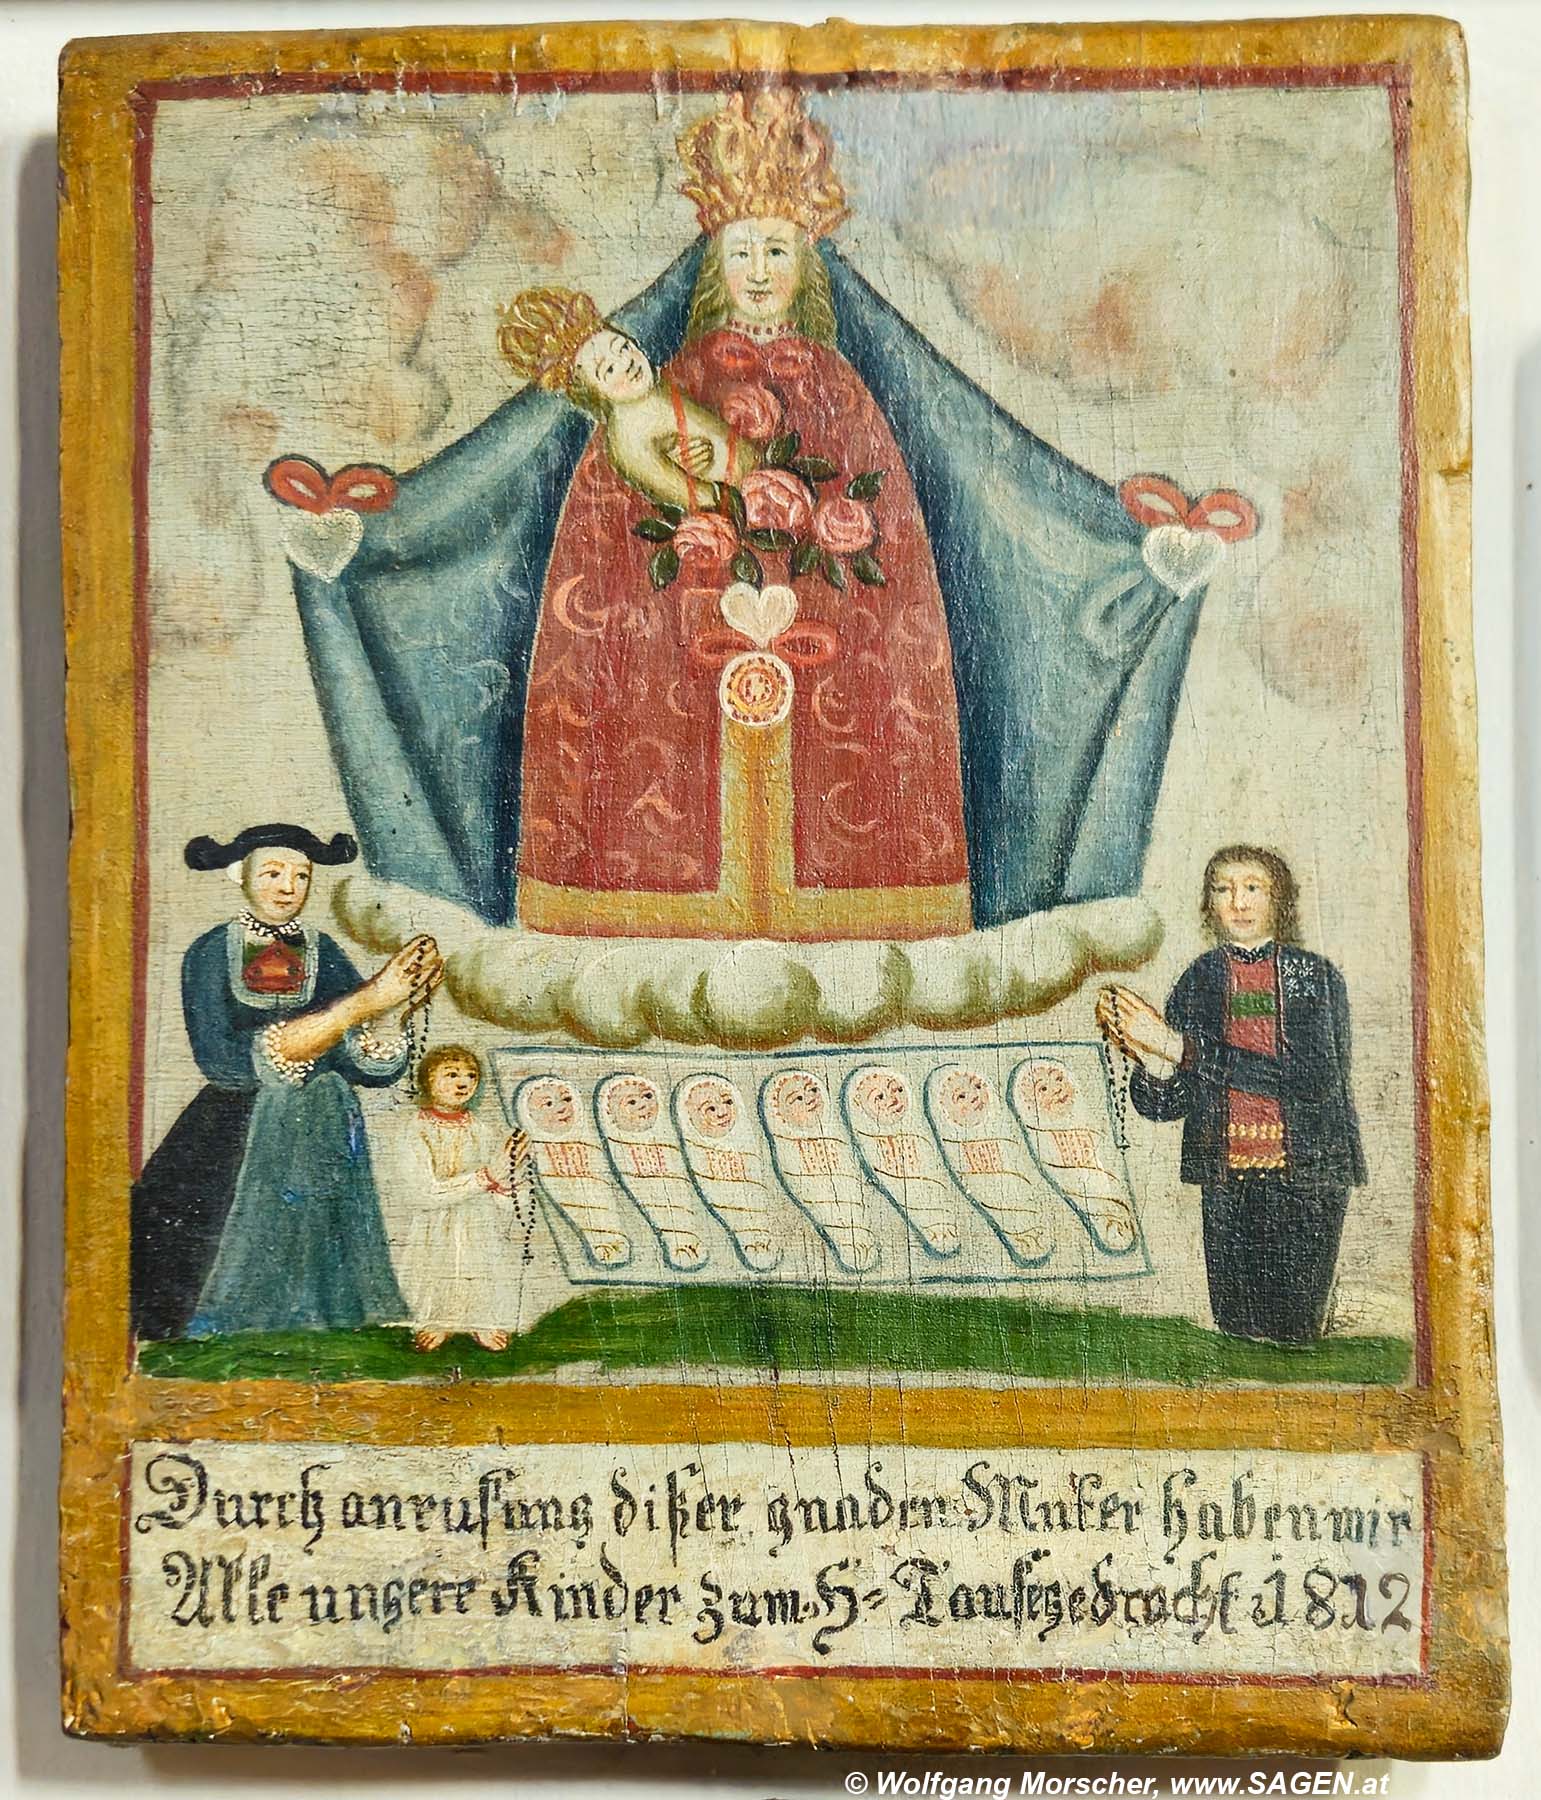 Durch anrufung dißer gnaden Muter haben wir
Alle ungere Kinder zum H= Taufegedracht 1812
© Wolfgang Morscher, www.SAGEN.at